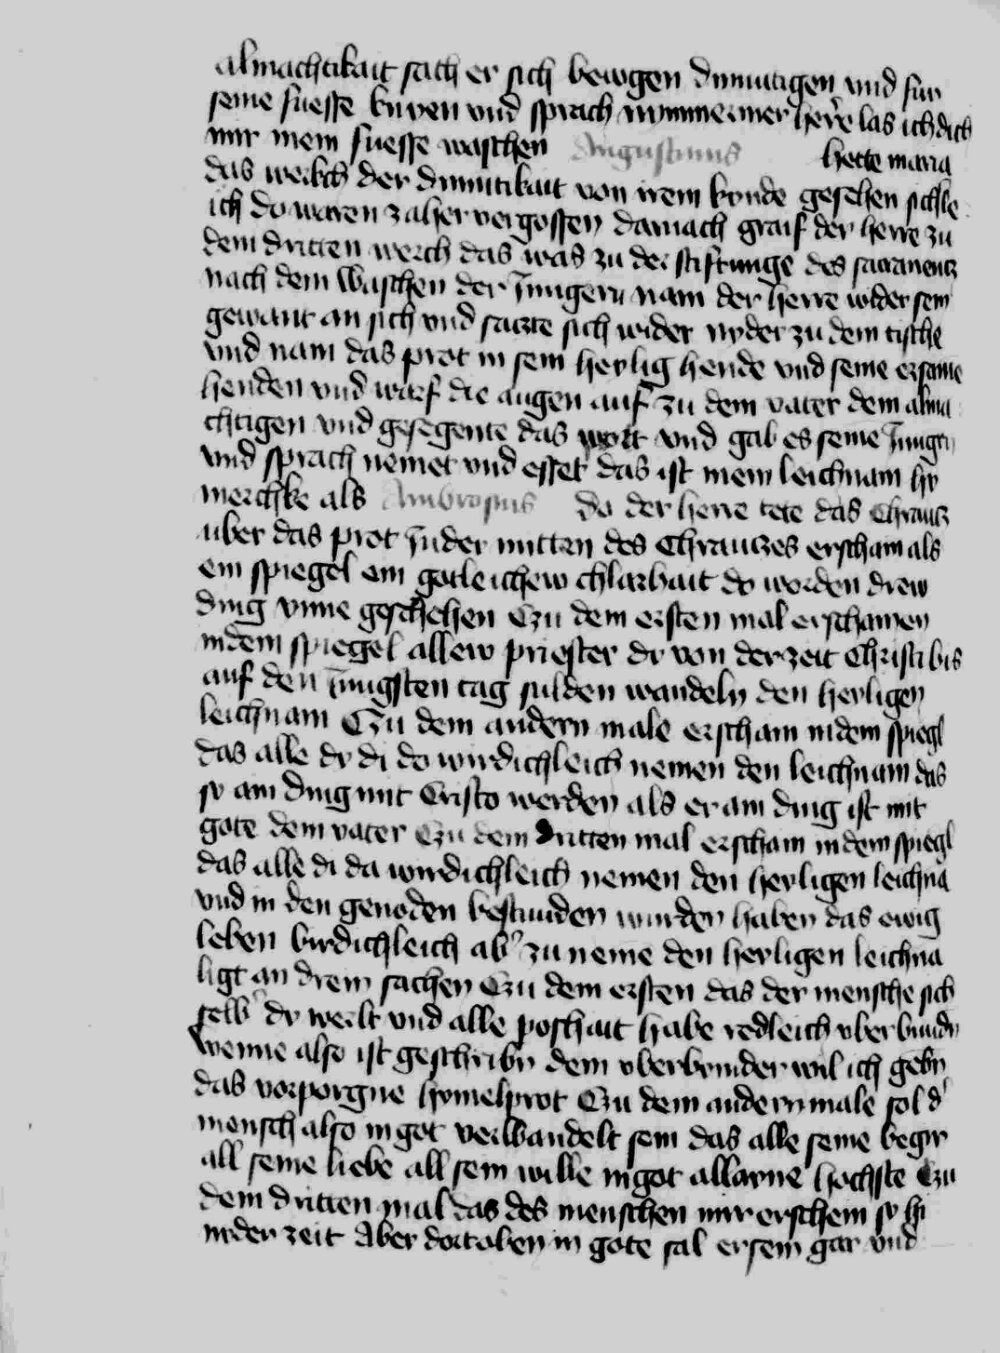 almachtikait sach er sich bewgen diimutigen vnd für
seine fuesse knyen vnd sprach nymmermer herre las ich dich
mir mein fuesse waschen Augustinus hette maria
das werkch der diimutikait von irem kynde gesehen sichle
ich do waren zaher vergossen darnach graif der herre zu
dem dritten werch das was zu der stiftunge des sacraments
nach dem Waschen der Jungern nam der herre wider sein
gewant an sich vnd saczte sich wider nyder zu dem tische
vnd nam das prot in sein heylig hende vnd seine ersame
henden vnd warf die augen auf zu dem vater dem alma
chtigen vnd gesegente das wort vnd gab es seine Jungern
vnd sprach nemet vnd esset das ist mein leichnam hy
merchke als Ambrosius do der herre tete das Chraucz
uber das prot Jnder mitten des Chrauczes erschain als
ein spiegel ein gotleichew chlarhait do worden drew
ding ynne geschehen Czu dem ersten mal erschainen
indem spiegel allew priester dy von der zeit Christi bis
auf den Jungsten tag sulden wandeln den heyligen
leichnam Czu dem andern male erschain indem spiegl
das alle dy di do wirdichleich nemen den leichnam das
sy ain ding mit Cristo werden als er ain ding ist mit
gote dem vater Czu dem dritten mal erschain indem spiegl
das alle di da wirdichleich nemen den heyligen leichna
vnd in den genoden bestunden wurden haben das ewig
leben wirdichleich ab' zu neme den heyligen leichna
ligt an drein sachen Czu dem ersten das der mensche sich
selb' dy werlt vnd alle poshait habe redleich vberbundn
wenne also ist geschribn dem vberbynder wil ich gebn
das vorporgne hymelprot Czu dem andern male sol d'
mensch also in got verwandelt sein das alle seine begir
all seine liebe all sein wille in got allayne hochste Czu
dem dritten mal das des menschen nyr erschein sy hy
inder zeit Aber dort oben in gote sal er sein gar vnd